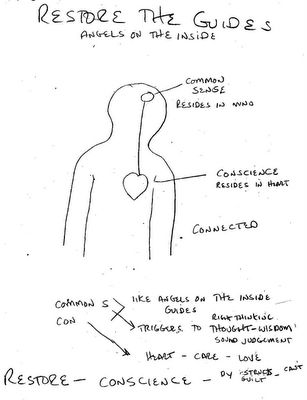 RESTORE THE GUIDES
ANGELS ON THE INSIDE
COMMON
SENSE
RESIDES IN MIND
CONSCIENCE
RESIDES IN HEART
CONNECTED
COMMON S
LIKE ANGELS ON THE INSIDE
GUIDES
RIGHT THINKING
CON
TRIGGERS TO THOUGHT-WISDOM
SOUND JUDGEMENT
HEART - CARE - LOVE
RESTORE - CONSCIENCE - CAN'T
GUILT